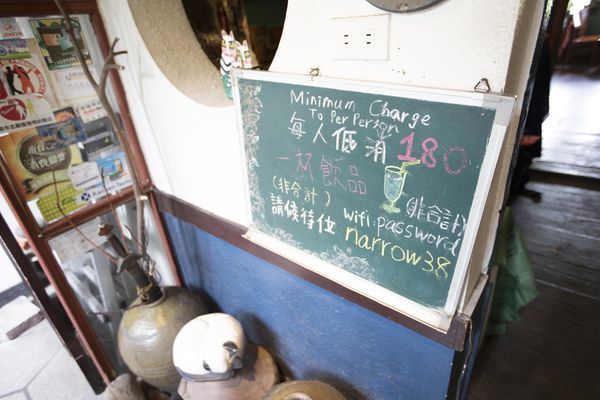 Minimum Charge
To Per Person
每人低消 180
一杯飲品
(非合計) (非合計)
請候待位 wifi password
narrow38